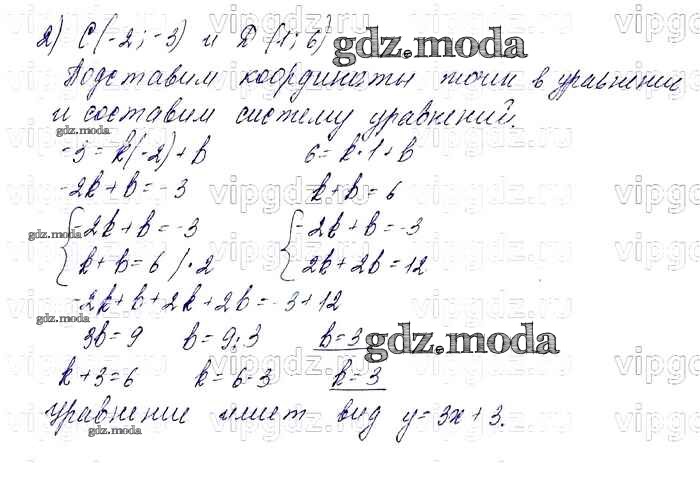 2) C(-2; -3) и D (1; 6) gdz.moda
Подставим координаты точки в уравнение
и составим систему уравнений.
gdz.moda
-3 = k(-2) + b 6 = k·1 + b
-2k + b = -3 k + b = 6
{ -2k + b = -3 { -2k + b = -3
gdz.moda
k + b = 6 /·2 2k + 2b = 12
-2k + b + 2k + 2b = -3 + 12
gdz.moda
3b = 9 b = 9:3 b = 3 gdz.moda
k + 3 = 6 k = 6-3 k = 3
Уравнение имеет вид y = 3x + 3.
gdz.moda